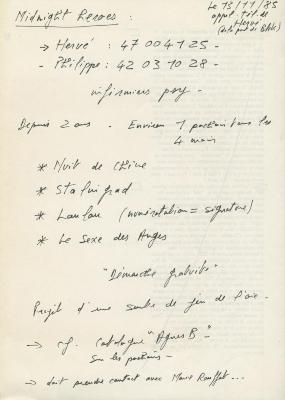 Midnight Heroes :
Le 13/11/85
appel tél. de
Hervé
(de la part de Blek)
→ Hervé : 47 00 41 25 -
- Philippe : 42 03 10 28 -
infirmiers psy -
Depuis 2 ans - Environ 1 pochoir tous les
4 mois
* Nuit de Chine
* Stalingrad
* Laulau (nominatation = signature)
* Le Sexe des Anges
"Démarche gratuite"
Projet d'une sorte de jeu de l'oie -
→ cf. Catalogue "Agnès B" -
sur les pochoirs -
→ doit prendre contact avec Marie Rouffet...